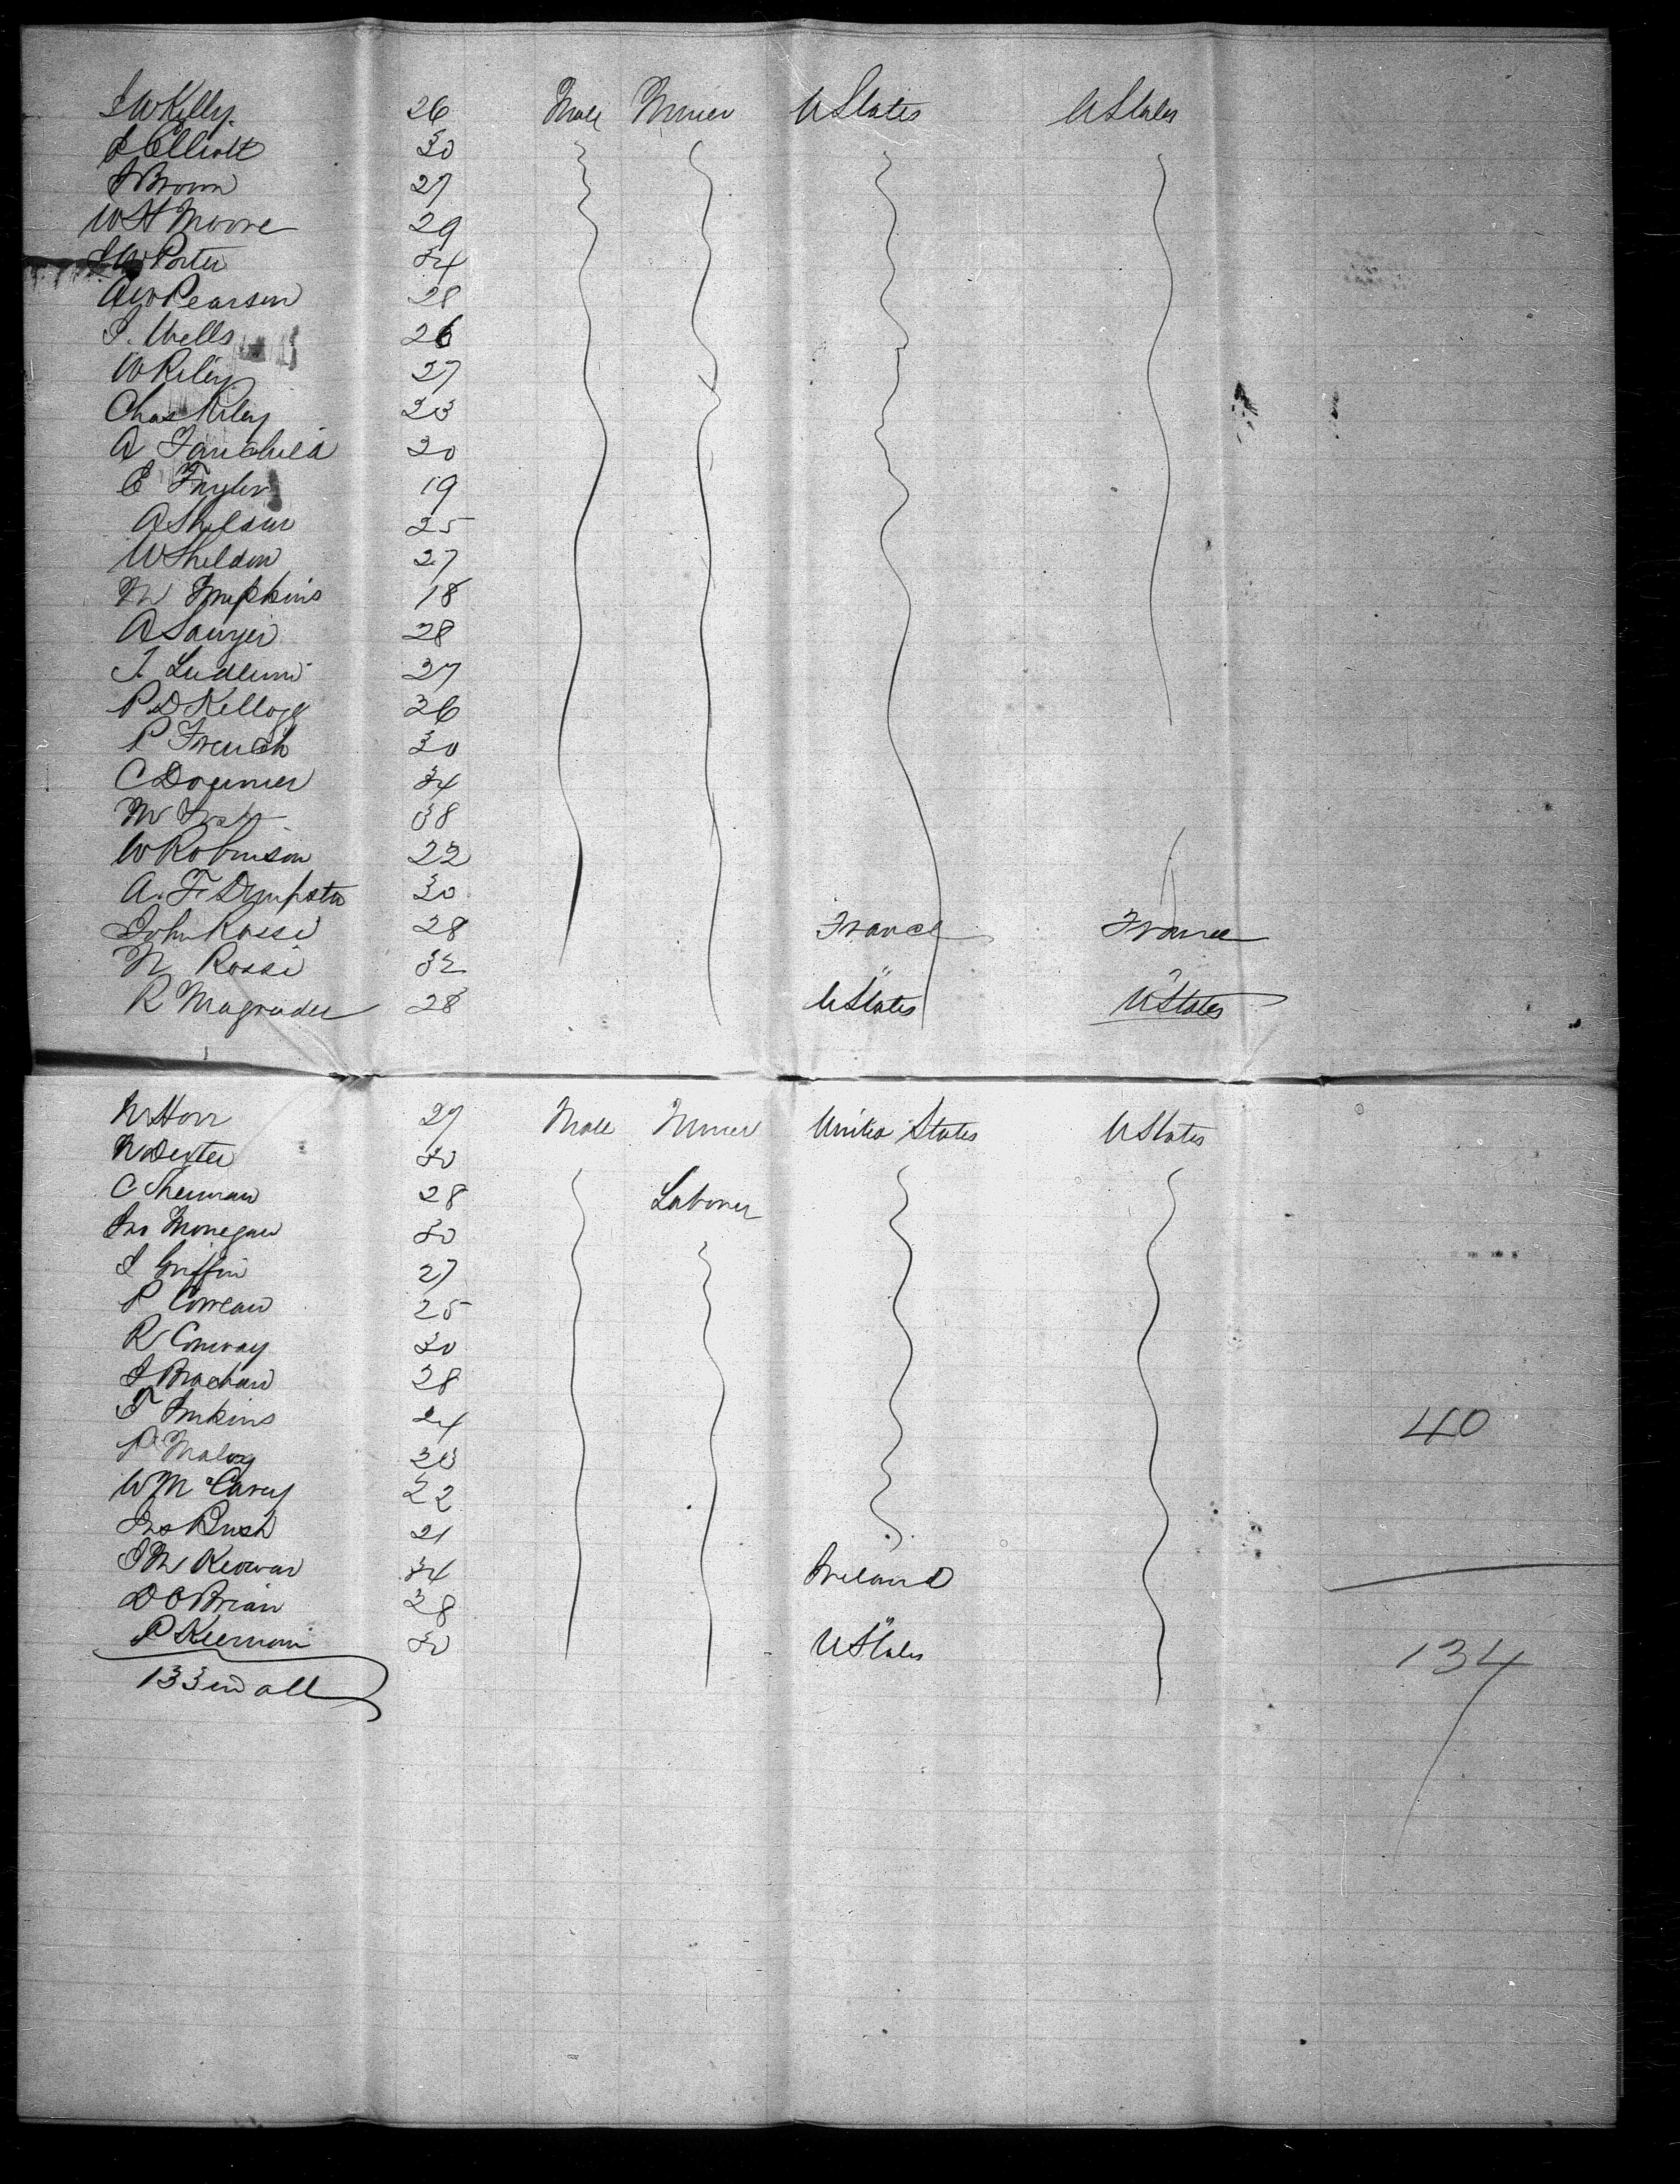 J W Kelly. 26 Male Miner U States U States
J Elliott 30
J Brown 27
W H Moore 29
J W Porter 34
A W Pearson 28
J. Wells 26
W Riley 27
Chas Riley 23
A Fairchild 20
E 19
A Sheldon 25
W Sheldon 27
M Tompkins 18
A Sawyer 28
J. Ludlum 27
P D Kellogg 26
P French 30
C 34
M 38
W Robinson 22
A. F. Dempster 30
John Rossi 28 France France
N Rossi 32 " "
R Magruder 28 U States U States
N Horr 27 Male Miner United States U States
N Dexter 30
C Sherman 28 Laborer
Jno Monegan 30
J Griffin 27
P 25
R Conway 30
J 28
T Jenkins 24
P Maloy 20
W McCarey 22
Jno Bush 21
J M 34 Ireland
D O Brian 28 "
P Kiernan 30 U States
133 in all
40
134